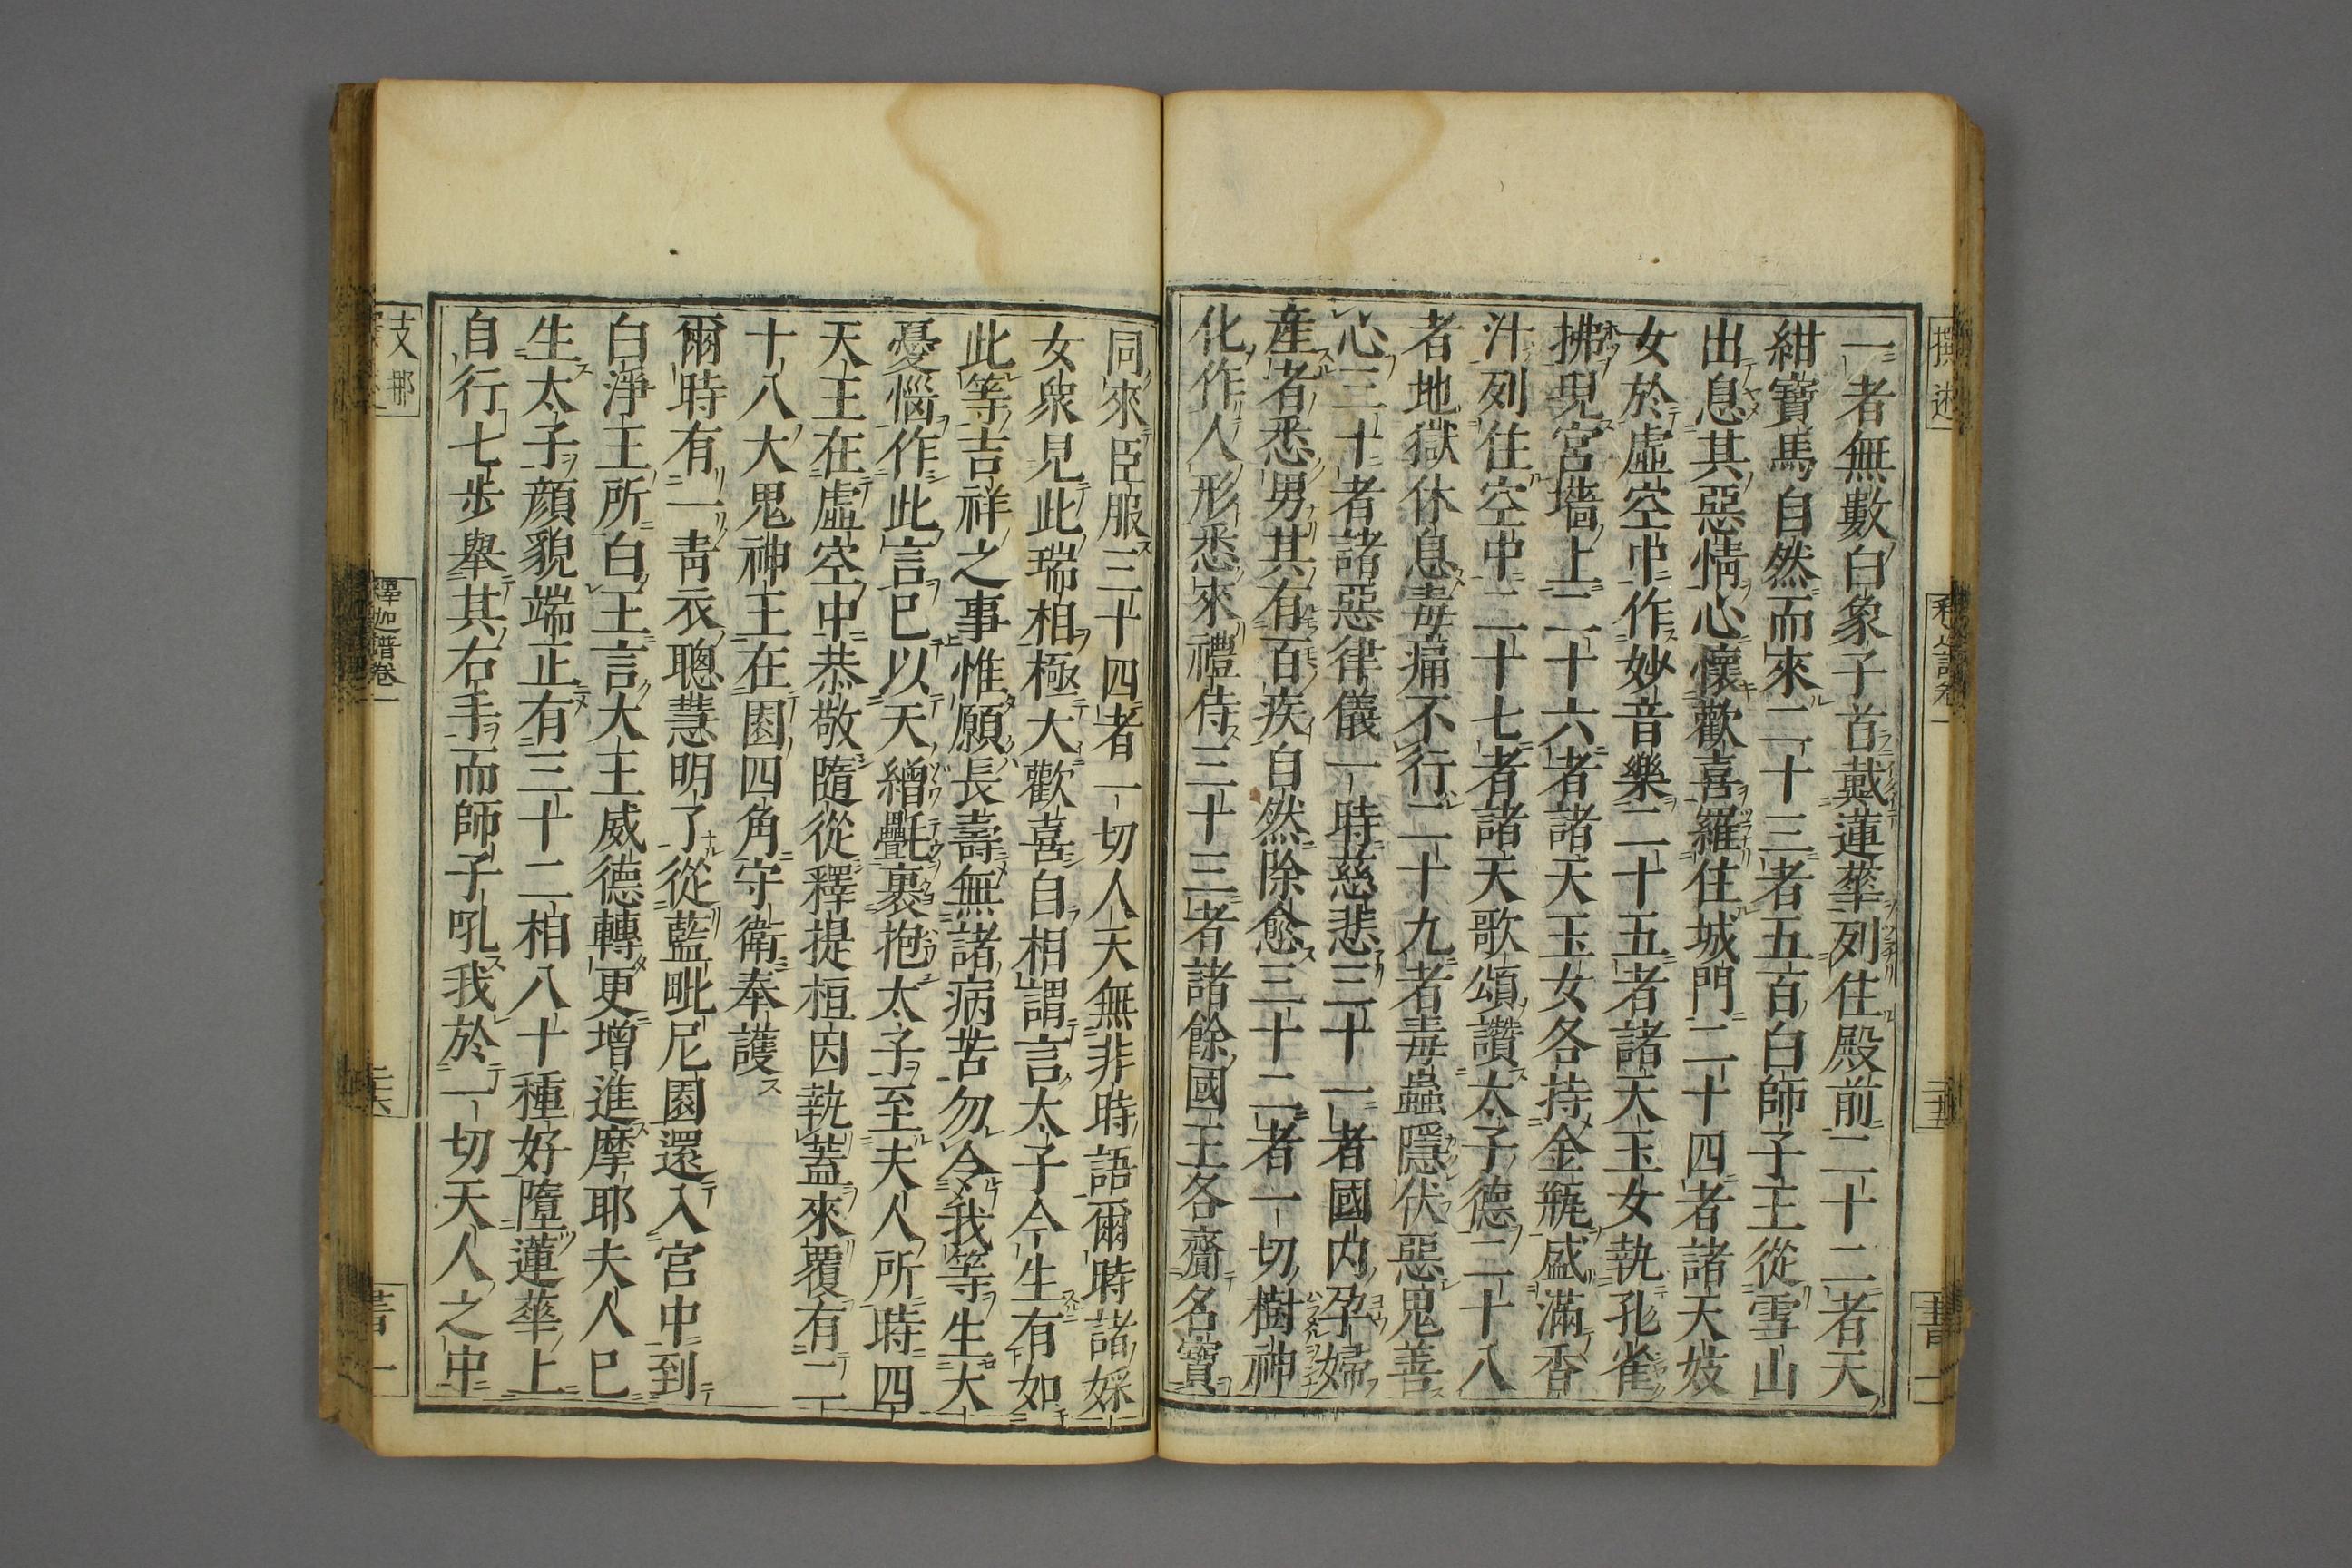 撰述
一者無數白象子首戴蓮華列住殿前二十二者天
紺寶馬自然而來二十三者五百白師子王從雪山
出息其惡情心懷歡喜羅住城門二十四者諸天妓
女於虛空中作妙音樂二十五者諸天玉女執孔雀
拂現宮墻上二十六者諸天玉女各持金瓶盛滿香
汁列住空中二十七者諸天歌頌讚太子德二十八
者地獄休息毒痛不行二十九者毒蟲隱伏惡鬼善
心三十者諸惡律儀一時慈悲三十一者國内孕婦
産者悉男其有百疾自然除愈三十二者一切樹神
化作人形悉來禮侍三十三者諸餘國王各齎名寶
同來臣服三十四者一切人天無非時語爾時諸婇
女衆見此瑞相極大歡喜自相謂言太子今生有如
此等吉祥之事惟願長壽無諸病苦勿令我等生大
憂惱作此言已以天繒㲲裹抱太子至夫人所時四
天王在虛空中恭敬隨從釋提桓因執蓋來覆有二
十八大鬼神王在園四角守衛奉護
爾時有一青衣聰慧明了從藍毗尼園還入宮中到
白淨王所白王言大王威德轉更增進摩耶夫人已
生太子顔貌端正有三十二相八十種好墮蓮華上
自行七步舉其右手而師子吼我於一切天人之中
支那
釋迦譜卷一